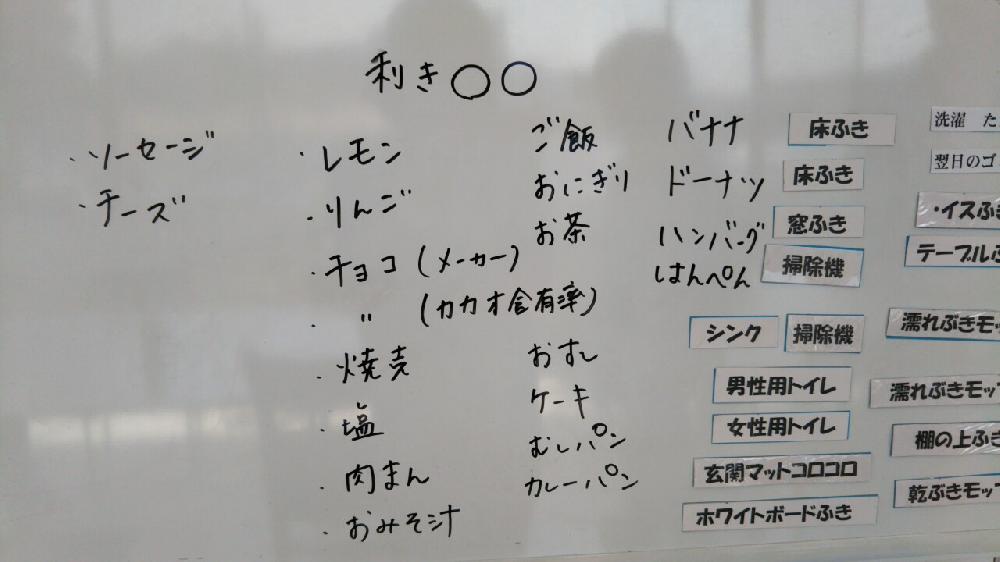 利き〇〇
・ソーセージ
・チーズ
・レモン
・りんご
・チョコ(メーカー)
・〃 (カカオ含有率)
・焼売
・塩
・肉まん
・おみそ汁
ご飯
おにぎり
お茶
おすし
ケーキ
むしパン
カレーパン
バナナ
ドーナツ
ハンバーグ
はんぺん
床ふき
床ふき
窓ふき
掃除機
シンク
掃除機
男性用トイレ
女性用トイレ
玄関マットコロコロ
ホワイトボードふき
洗濯 た
翌日のゴ
・イスふき
テーブルふ
濡れぶきモッ
濡れぶきモッ
棚の上ふき
乾ぶきモップ